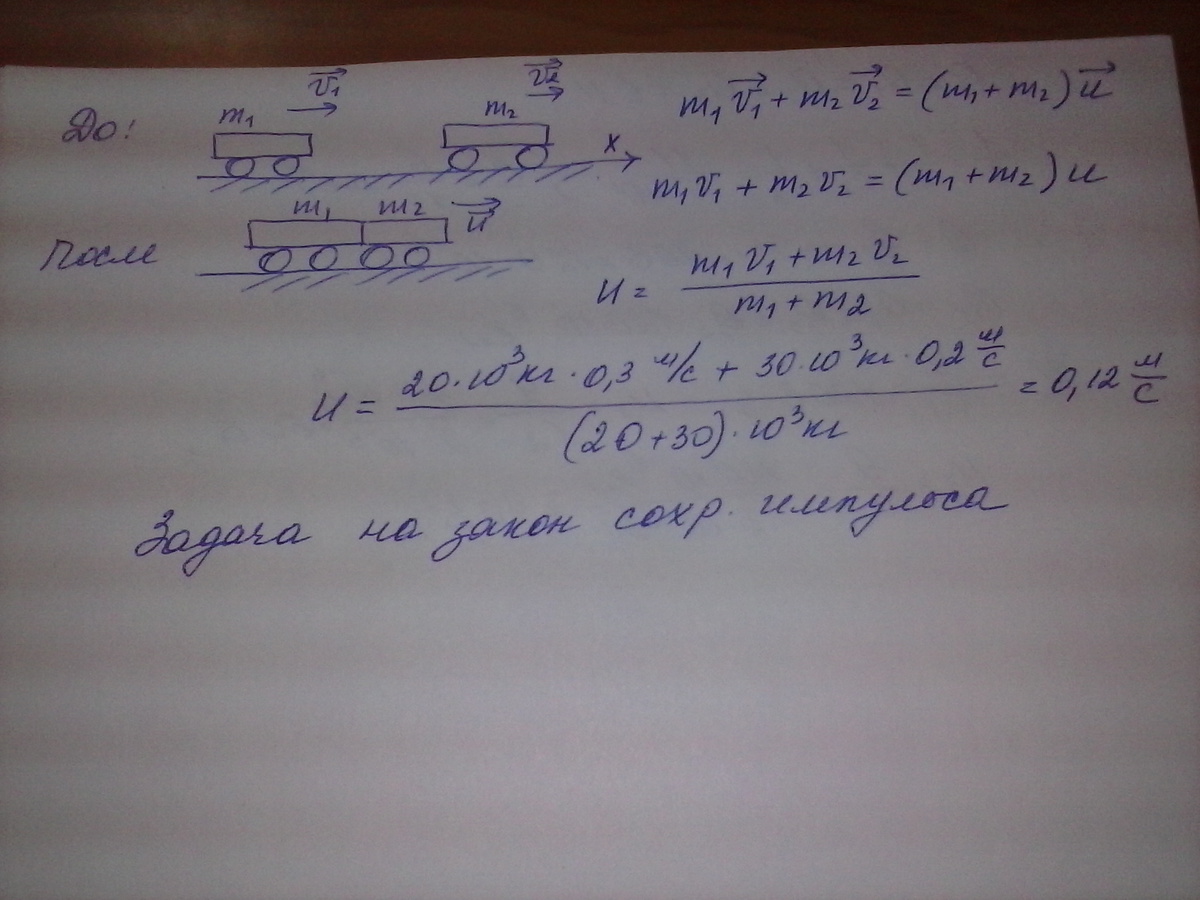 До:
m₁ v⃗₁ m₂ v⃗₂ x
m₁v⃗₁ + m₂v⃗₂ = (m₁ + m₂)u⃗
m₁v₁ + m₂v₂ = (m₁ + m₂)u
После
m₁ m₂ u⃗
u = (m₁v₁ + m₂v₂) / (m₁ + m₂)
u = (20·10³кг · 0,3 м/с + 30·10³кг · 0,2 м/с) / ((20 + 30)·10³кг) = 0,12 м/с
Задача на закон сохр. импульса